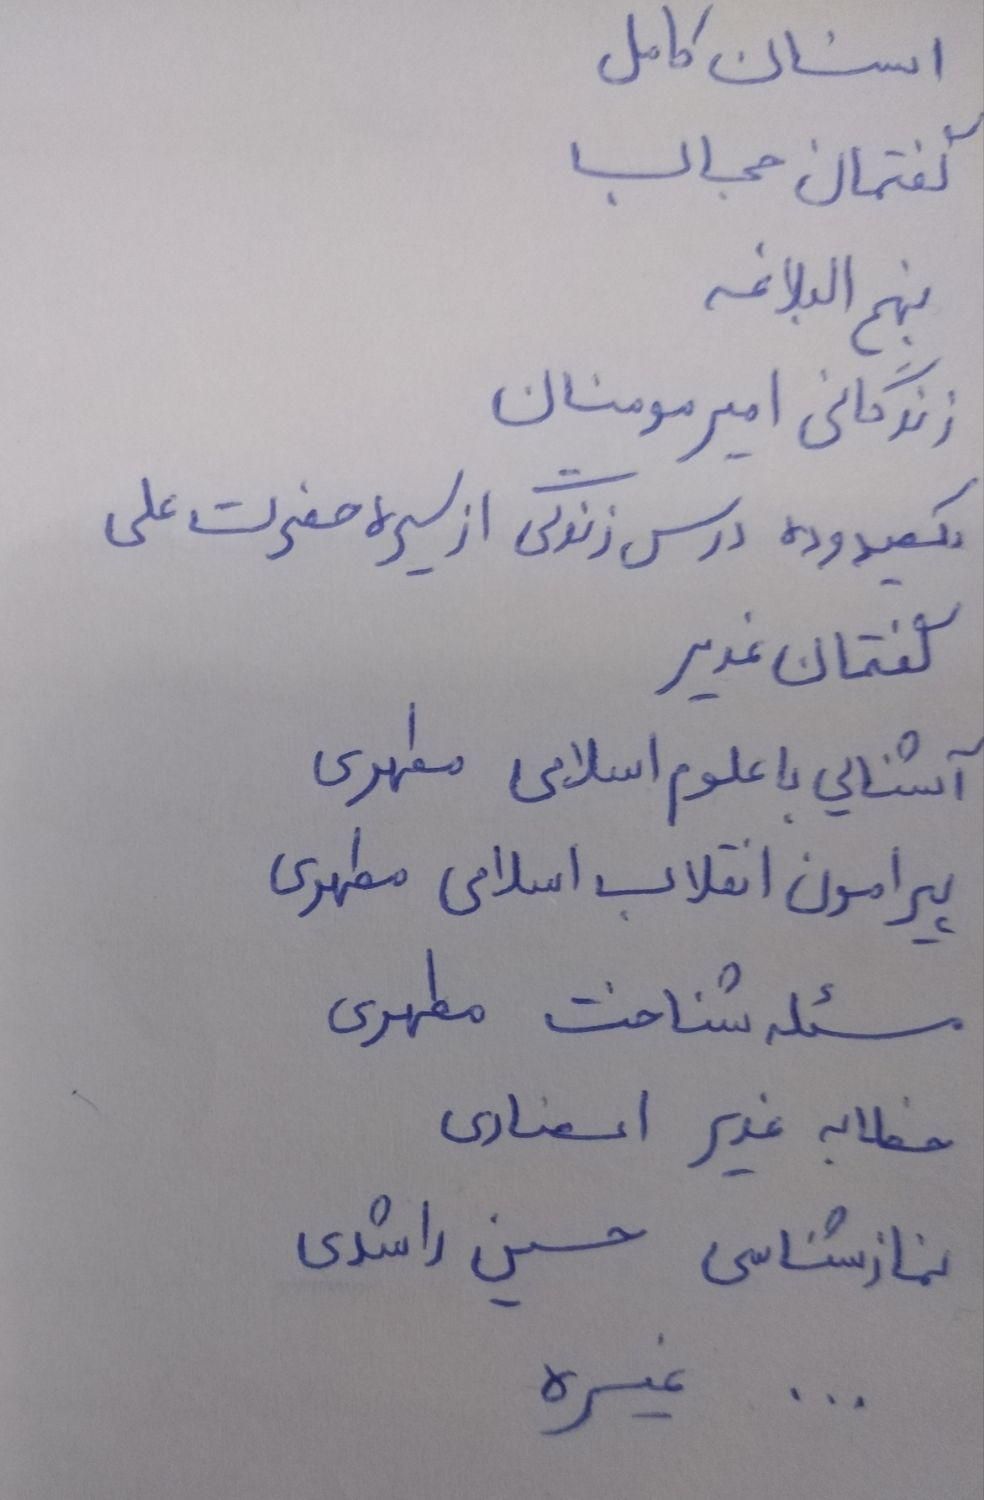 انسان کامل
گفتمان حجاب
نهج البلاغه
زندگانی امیر مومنان
یکصدوده درس زندگی از سیره حضرت علی
گفتمان غدیر
آشنایی با علوم اسلامی مطهری
پیرامون انقلاب اسلامی مطهری
مسئله شناخت مطهری
خطابه غدیر انصاری
نماز شناسی حسین راشدی
... غیره